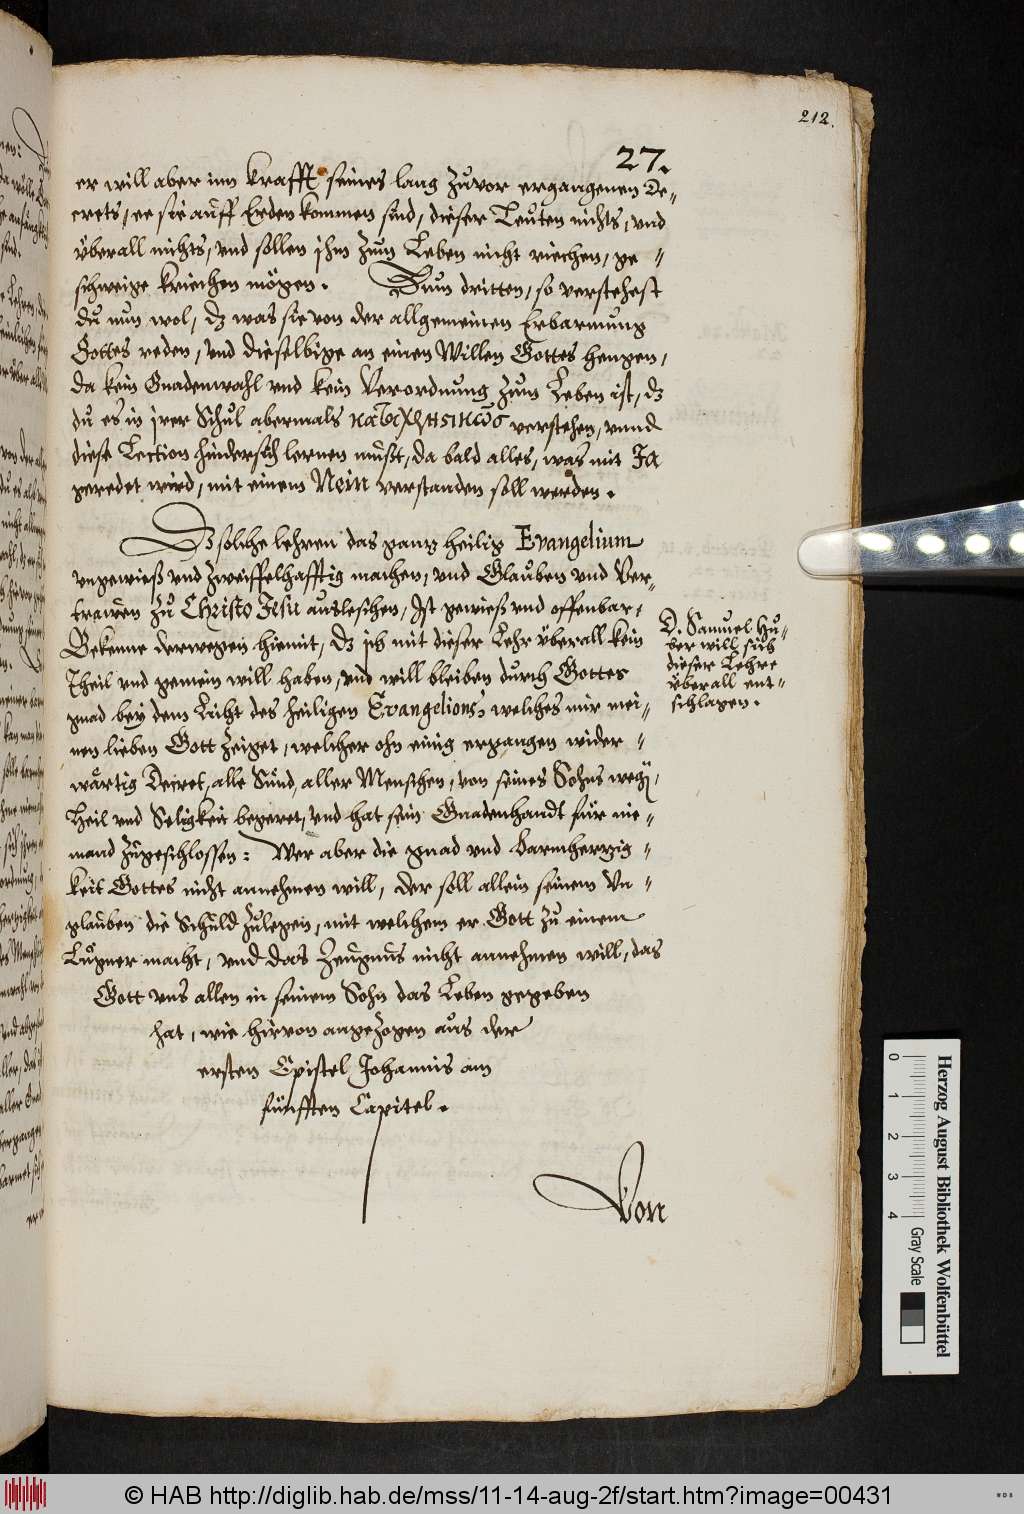 212.
27.
er will aber inn krafft seines lang zuvor ergangenen De-
crets, ee sie auff Erden kommen sind, dieser Leuten nichts, und
überall nichts, und sollen ihm zum Leben nicht riechen, ge-
schweige kriechen mögen. Zum dritten, so verstehest
du nun wol, dz was sie von der allgemeinen Erbarmung
Gottes reden, und dieselbige an einen Willen Gottes hengen,
da kein Gnadenwahl und kein Verordnung zum Leben ist, dz
du es in irer Schul abermals verstehen, unnd
diese Lection hindersich lernen mußt, da bald alles, was mit Ja
geredet wird, mit einem Nein verstanden soll werden.
Dz solche lehren das gantz heilig Evangelium
ungewieß und zweiffelhafftig machen, und Glauben und Ver-
trawen zu Christo Jesu ausleschen, Ist gewieß und offenbar,
Bekenne derwegen hiemit, dz ich mit dieser Lehr überall kein
Theil und gemein will haben, und will bleiben durch Gottes
gnad bey dem Liecht des heiligen Evangelions, welches mir mei-
nen lieben Gott zeiget, welcher ohn einig ergangen wider-
wärtig Decret, alle Sünd, aller Menschen, von seines Sohns wegen,
Heil und Seligkeit begeret, und hat sein Gnadenhandt für nie-
mand zugeschlossen: Wer aber die gnad und Barmhertzig-
keit Gottes nicht annehmen will, der soll allein seinem Un-
glauben die Schuld zulegen, mit welchem er Gott zu einem
Lügner macht, und das Zeugnus nicht annehmen will, das
Gott uns allen in seinem Sohn das Leben gegeben
hat, wie hievon angezogen aus der
ersten Epistel Johannis am
fünfften Capitel.
Von
D. Samuel Hu-
ber will sich
dieser Lehre
überall ent-
schlagen.
Herzog August Bibliothek Wolfenbüttel
0 1 2 3 4 Gray Scale
© HAB http://diglib.hab.de/mss/11-14-aug-2f/start.htm?image=00431